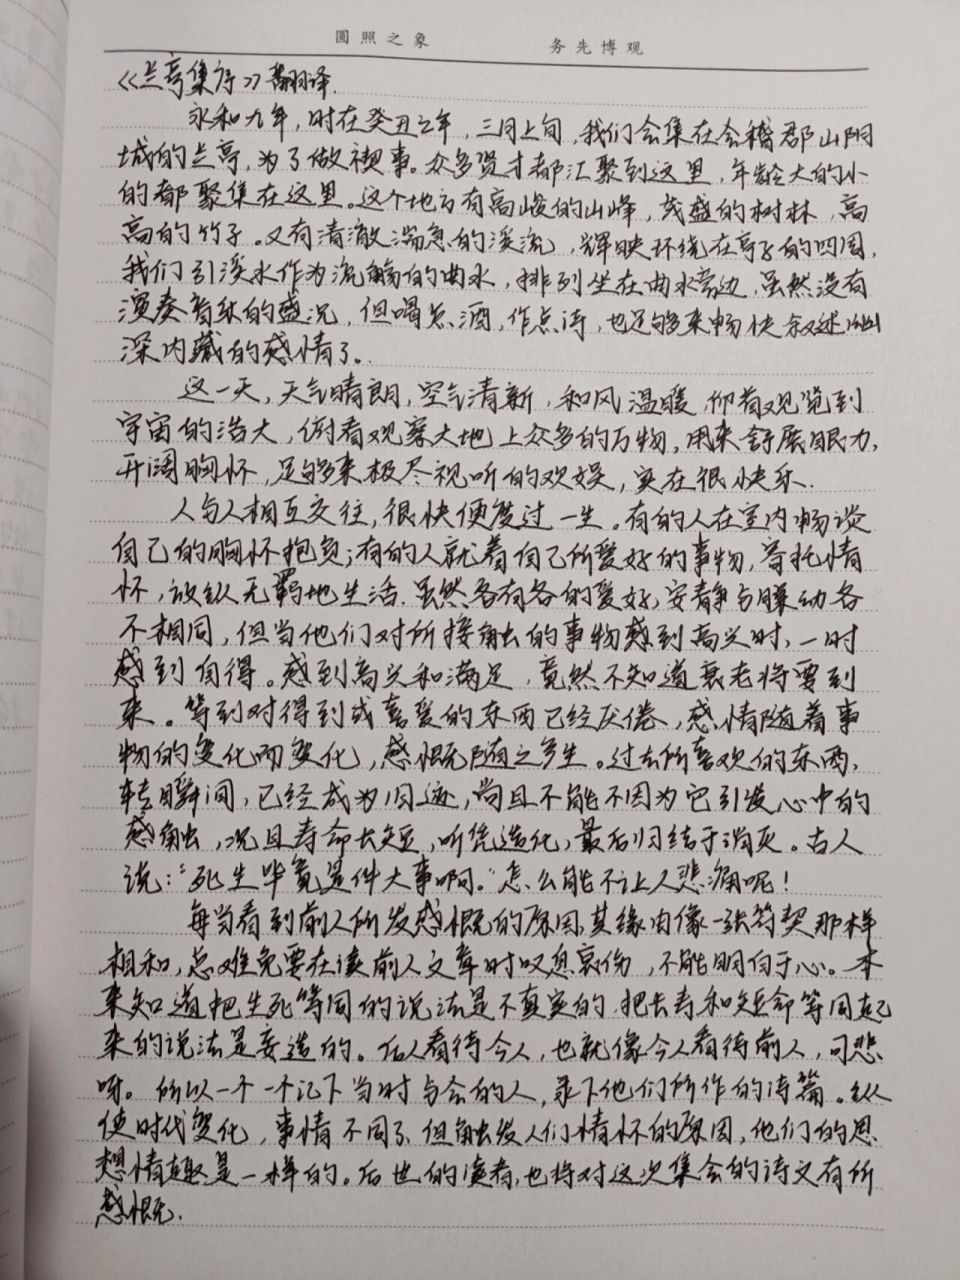 圆照之象 务先博观
《兰亭集序》翻译.
永和九年，时在癸丑之年，三月上旬，我们会集在会稽郡山阴
城的兰亭，为了做禊事。众多贤才都汇聚到这里，年龄大的小
的都聚集在这里。这个地方有高峻的山峰，茂盛的树林，高
高的竹子。又有清澈湍急的溪流，辉映环绕在亭子的四周，
我们引溪水作为流觞的曲水，排列坐在曲水旁边，虽然没有
演奏音乐的盛况，但喝点酒，作点诗，也足够来畅快叙述幽
深内藏的感情了。
这一天，天气晴朗，空气清新，和风温暖，仰首观览到
宇宙的浩大，俯看观察大地上众多的万物，用来舒展眼力，
开阔胸怀，足够来极尽视听的欢娱，实在很快乐.
人与人相互交往，很快便度过一生。有的人在室内畅谈
自己的胸怀抱负；有的人就着自己所爱好的事物，寄托情
怀，放纵无羁地生活.虽然各有各的爱好，安静与躁动各
不相同，但当他们对所接触的事物感到高兴时，一时
感到自得。感到高兴和满足，竟然不知道衰老将要到
来。等到对得到或喜爱的东西已经厌倦，感情随着事
物的变化而变化，感慨随之产生。过去所喜欢的东西，
转瞬间，已经成为旧迹，尚且不能不因为它引发心中的
感触，况且寿命长短，听凭造化，最后归结于消灭。古人
说：“死生毕竟是件大事啊。”怎么能不让人悲痛呢！
每当看到前人所发感慨的原因，其缘由像一张符契那样
相和，总难免要在读前人文章时叹息哀伤，不能明白于心。本
来知道把生死等同的说法是不真实的，把长寿和短命等同起
来的说法是妄造的。后人看待今人，也就像今人看待前人，可悲
呀。所以一个一个记下当时与会的人，录下他们所作的诗篇。纵
使时代变化，事情不同了，但触发人们情怀的原因，他们的思
想情趣是一样的。后世的读者，也将对这次集会的诗文有所
感慨.